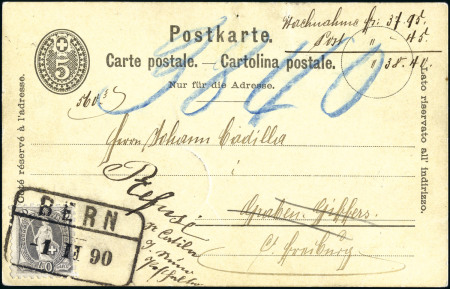 Postkarte.
Carte postale. – Cartolina postale.
Nur für die Adresse.
Nachnahme fr. 37.95.
Port " - 45
" 38.40.
3840
5
5603
Côté réservé à l'adresse.
Lato riservato all' indirizzo.
Herrn Johann Cadilla
Refusé
Graben. Giffers.
Ct. Freiburg
BERN
-1. II 90
40